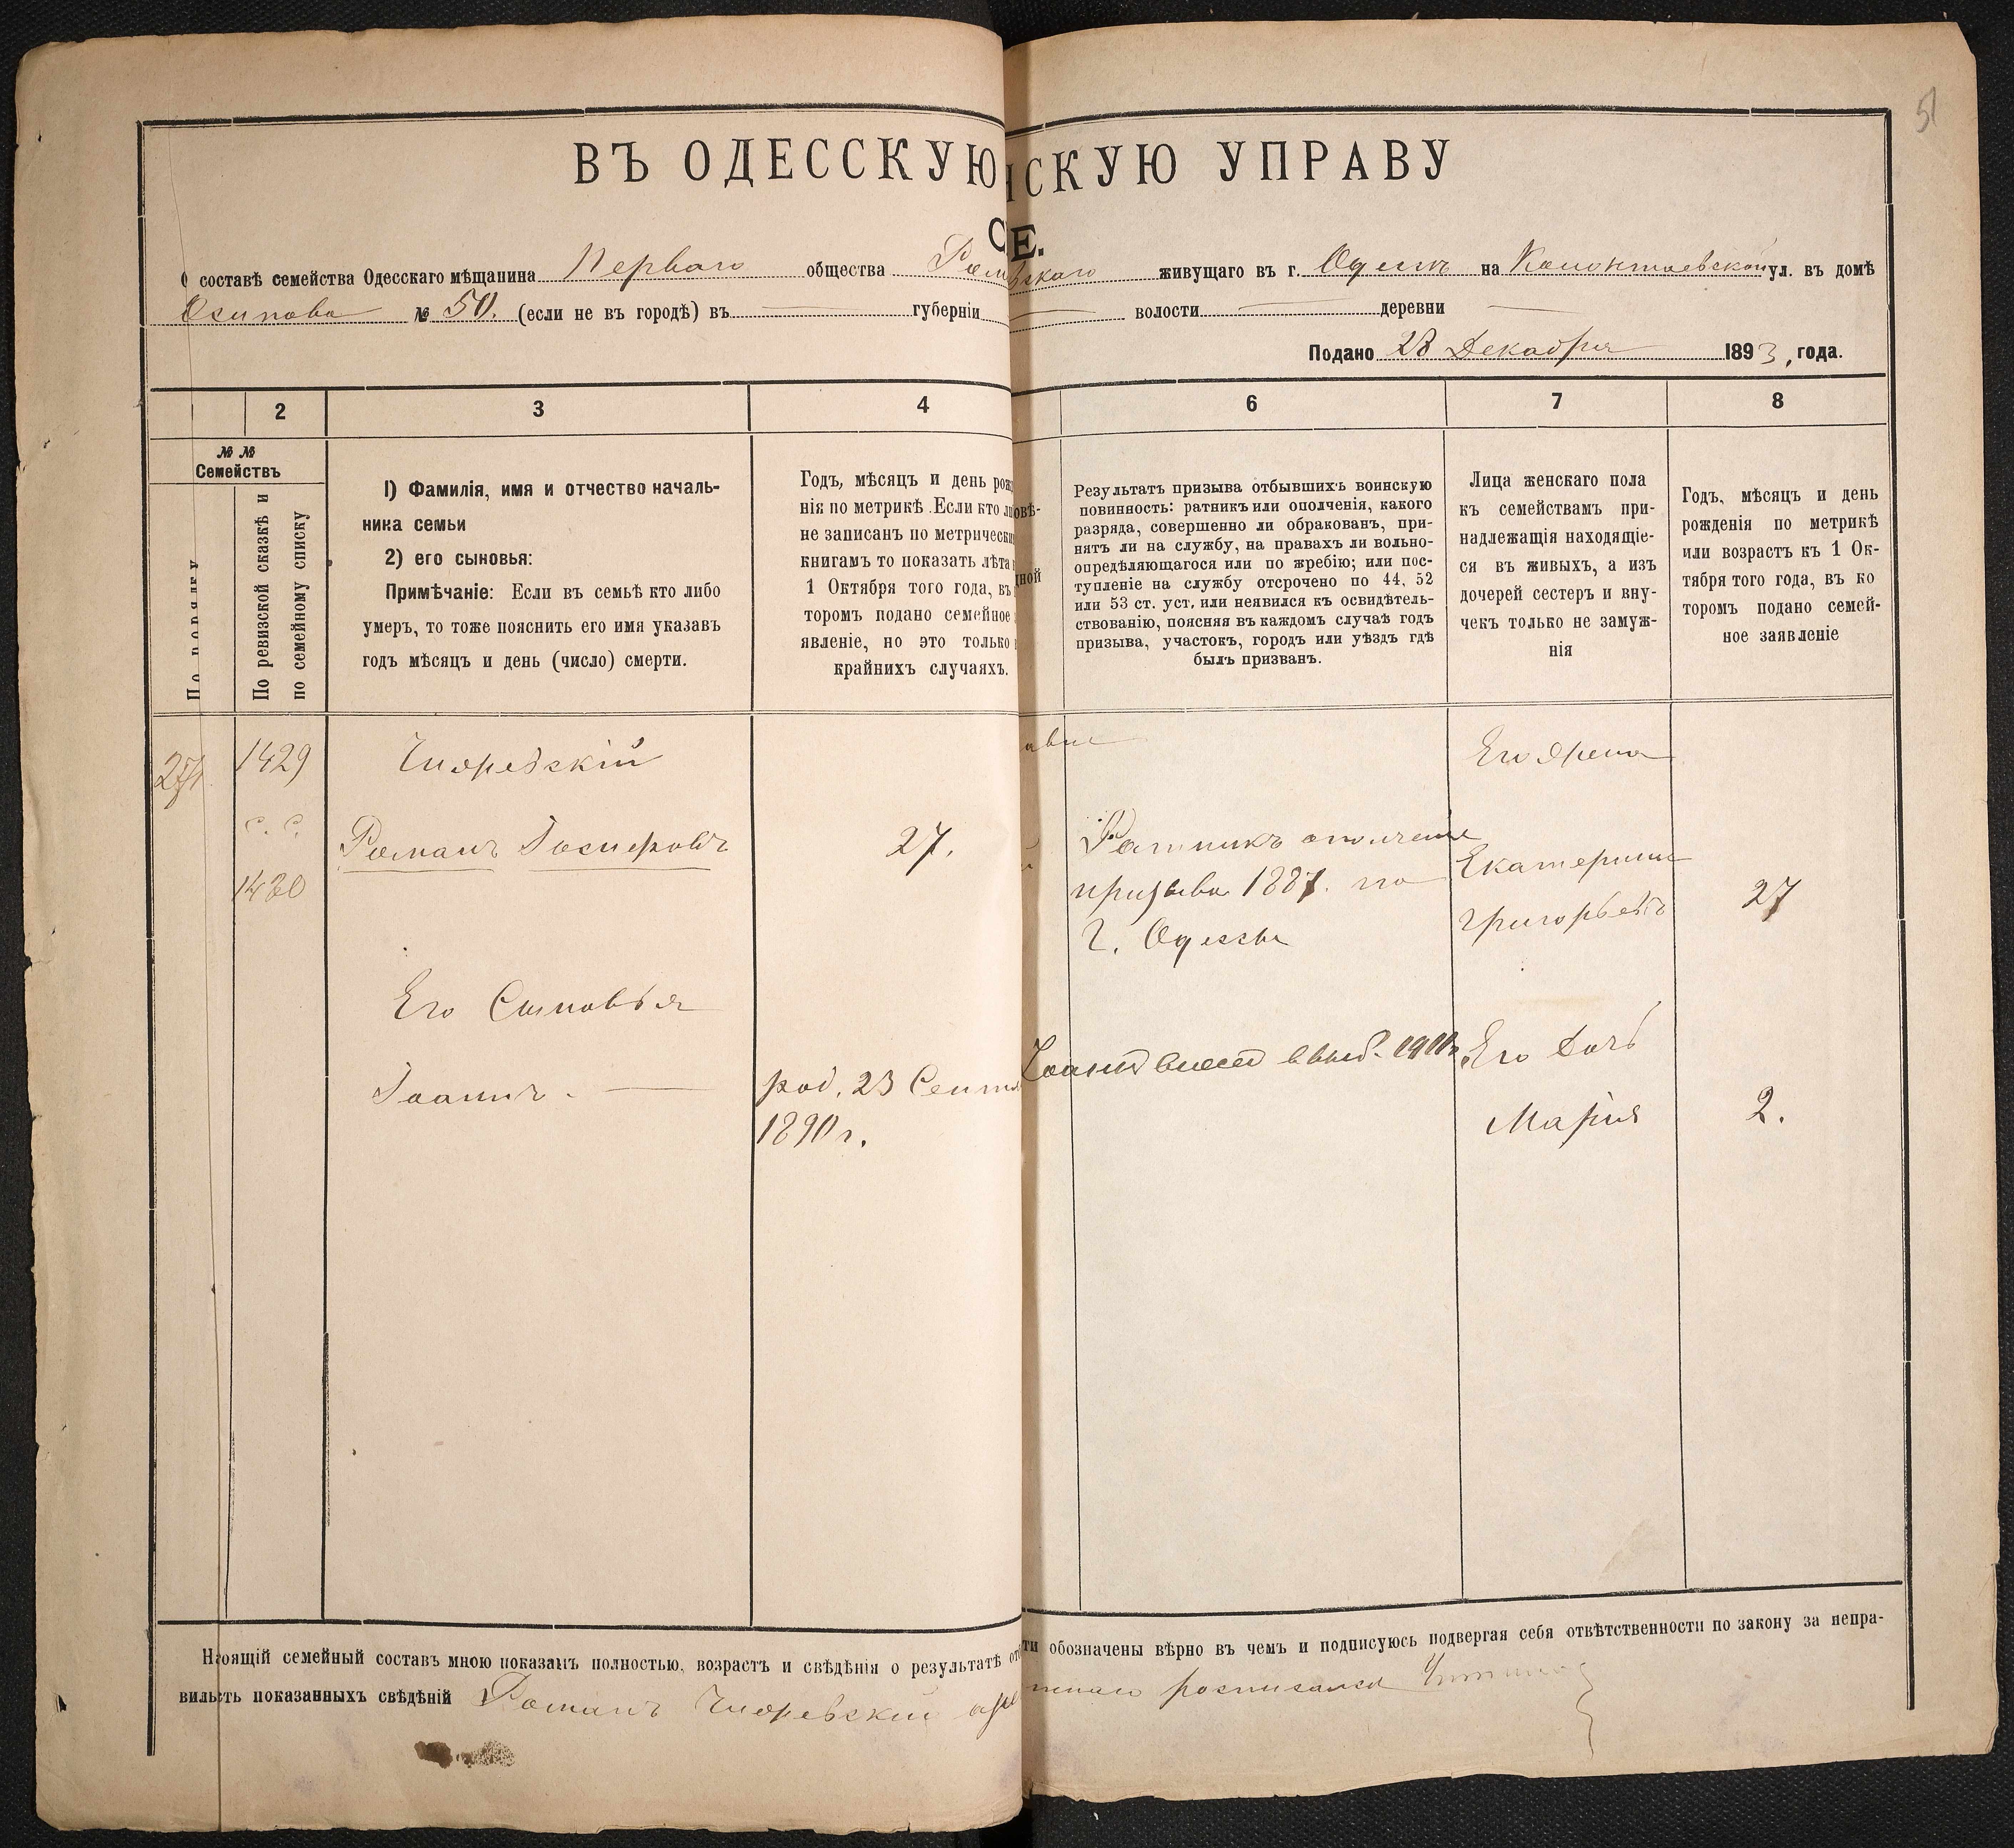 51
ВЪ ОДЕССКУЮ НСКУЮ УПРАВУ
С Е.
О составѣ семейства Одесскаго мѣщанина Перваго общества живущаго въ г. Одессѣ на ул. въ домѣ
Осипова № 50. (если не въ городѣ) въ — губерніи — волости — деревни —
Подано 28 Декабря 1893, года.
2 3 4 6 7 8
№ №
Семействъ
По порядку
По ревизской сказкѣ и
по семейному списку
1) Фамилія, имя и отчество началь-
ника семьи
2) его сыновья:
Примѣчаніе: Если въ семьѣ кто либо
умеръ, то тоже пояснить его имя указавъ
годъ мѣсяцъ и день (число) смерти.
Годъ, мѣсяцъ и день рож
нія по метрикѣ. Если кто ли
не записанъ по метрически
книгамъ то показать лѣта
1 Октября того года, въ
торомъ подано семейное
явленіе, но это только
крайнихъ случаяхъ.
овѣ-
ной
Результатъ призыва отбывшихъ воинскую
повинность: ратникъ или ополченія, какого
разряда, совершенно ли обракованъ, при-
нятъ ли на службу, на правахъ ли вольно-
опредѣляющагося или по жребію; или пос-
тупленіе на службу отсрочено по 44, 52
или 53 ст. уст, или неявился къ освидѣтель-
ствованію, поясняя въ каждомъ случаѣ годъ
призыва, участокъ, городъ или уѣздъ гдѣ
былъ призванъ.
Лица женскаго пола
къ семействамъ при-
надлежащія находящіе-
ся въ живыхъ, а изъ
дочерей сестеръ и вну-
чекъ только не замуж-
нія
Годъ, мѣсяцъ и день
рожденія по метрикѣ
или возрастъ къ 1 Ок-
тября того года, въ ко
торомъ подано семей-
ное заявленіе
1429
с. с.
Романъ Іосифовъ
27.
Ратникъ ополченія
призыва 1887. по
г. Одессы
Его Жена
Екатерина
Григорьева
27
Его Сыновья
Іоаннъ. —
род. 23 Сентя
1890 г.
Его Дочь
Марія
2.
Н оящій семейный составъ мною показанъ полностью, возрастъ и свѣдѣнія о результатѣ от ти обозначены вѣрно въ чемъ и подписуюсь подвергая себя отвѣтственности по закону за непра-
вильсть показанныхъ свѣдѣній Романъ росписался